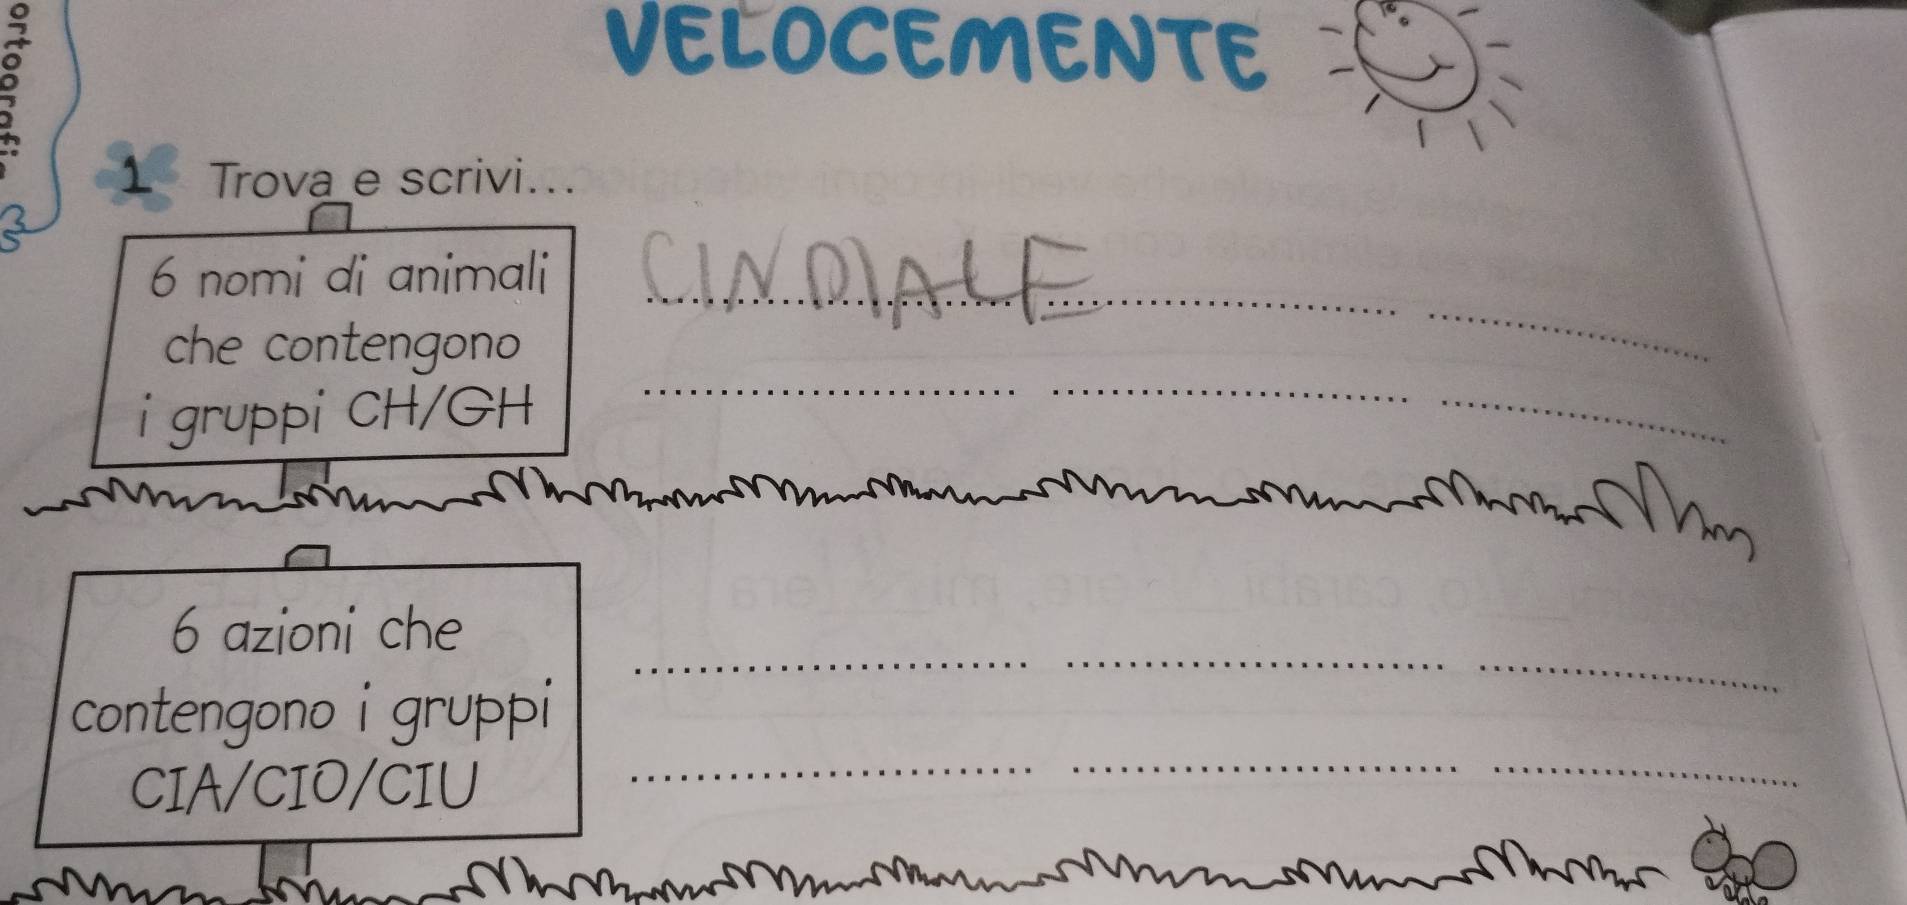 ortografia
VELOCEMENTE
1 Trova e scrivi...
6 nomi di animali
che contengono
i gruppi CH/GH
CINDIALE
6 azioni che
contengono i gruppi
CIA/CIO/CIU